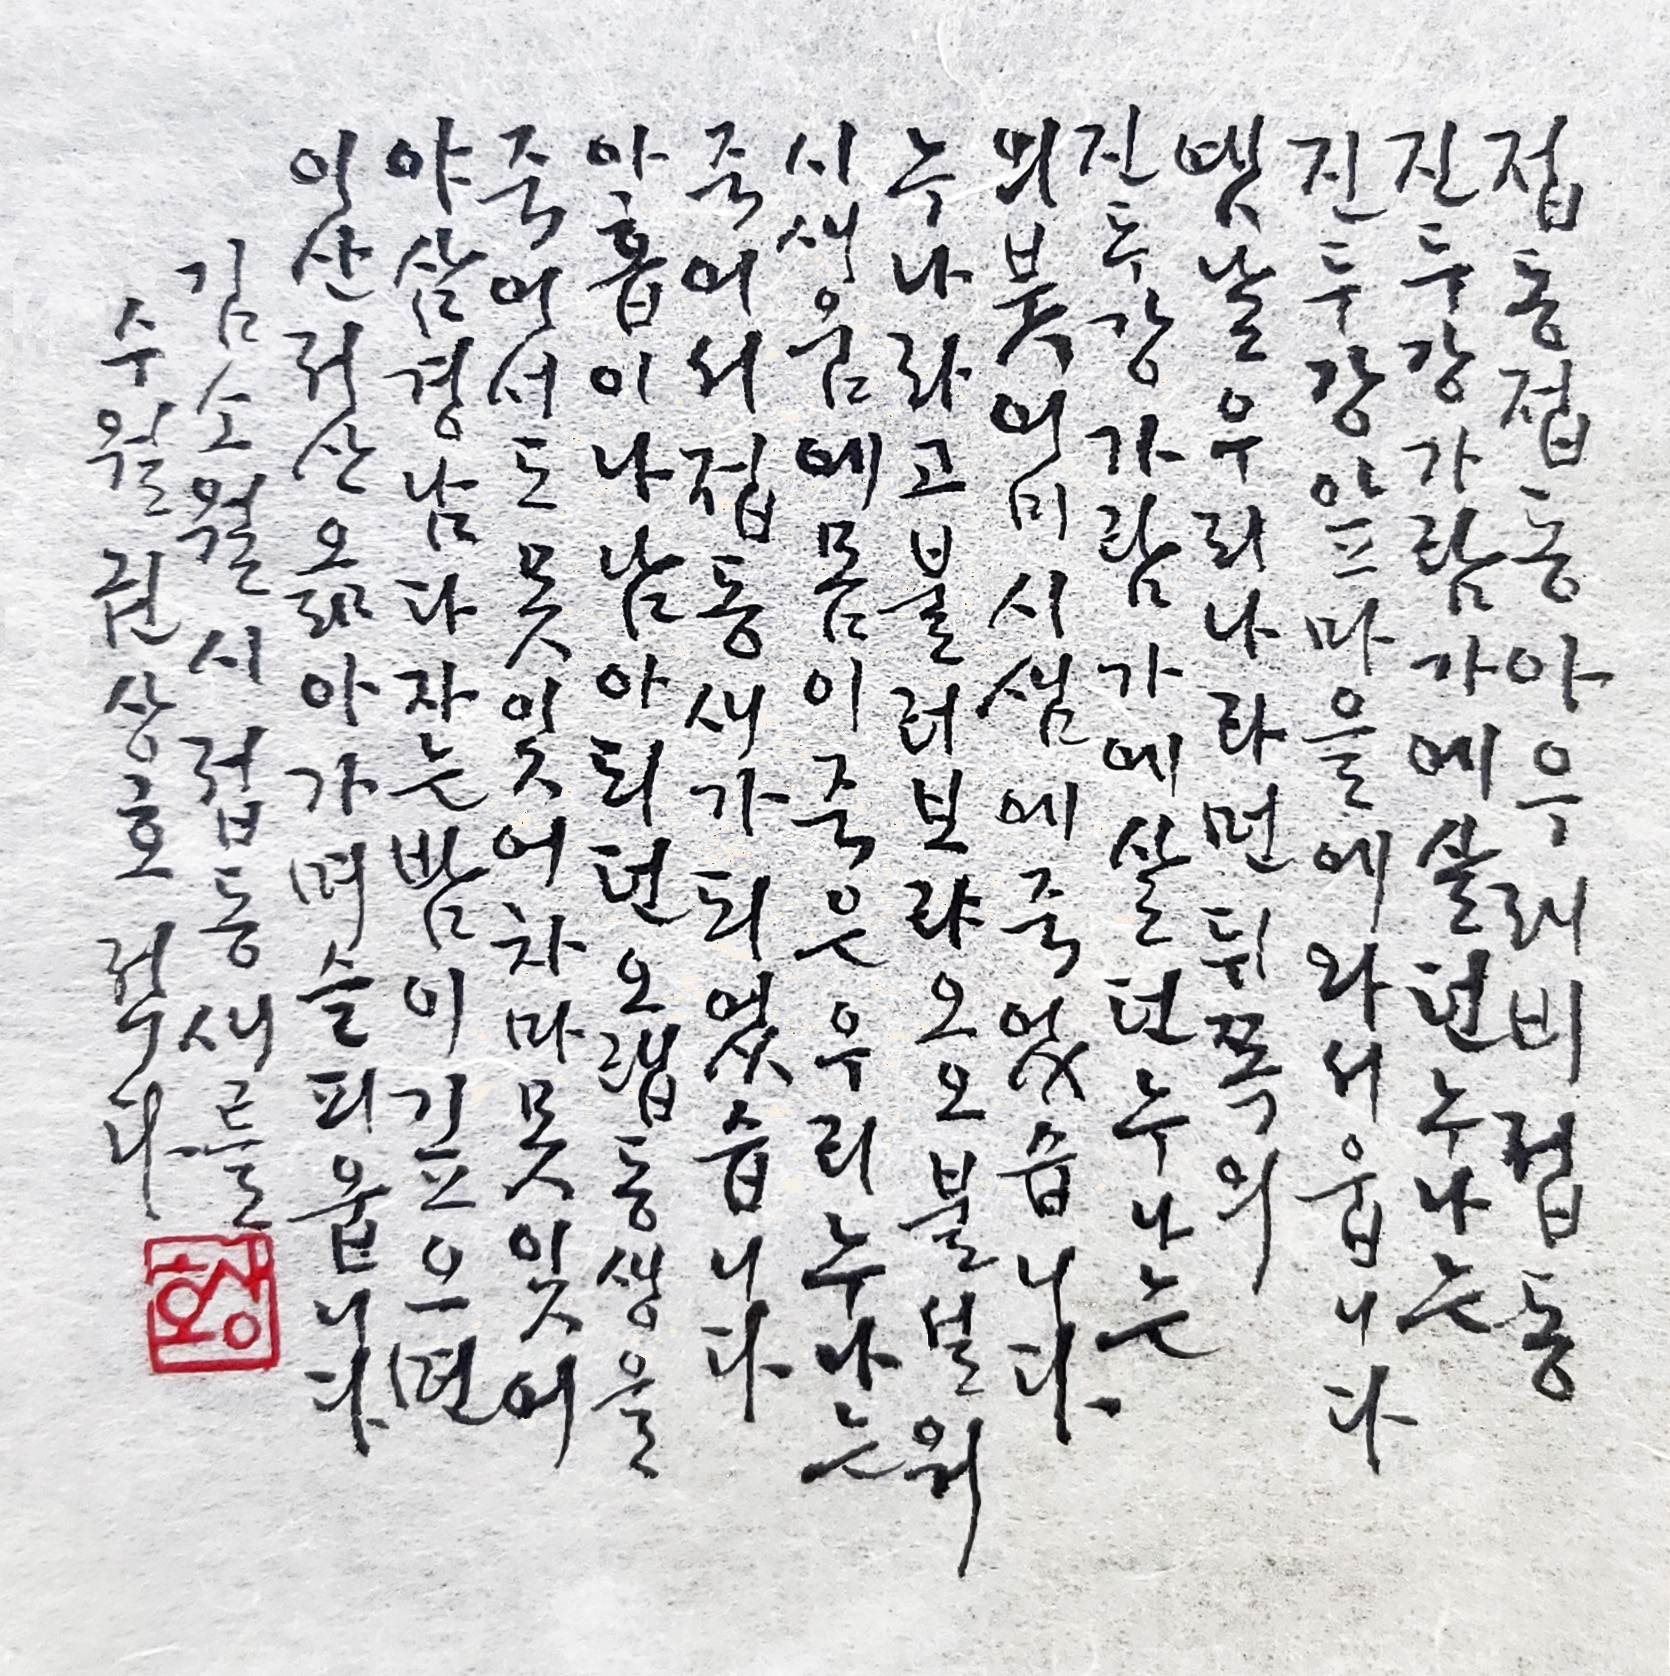 접동접동아우래비접동
진두강가람가에살던누나는
진두강앞마을에와서웁니다
옛날우리나라먼뒤쪽의
진두강가람가에살던누나는
의붓어미시샘에죽었습니다
누나라고불러보랴오오불설워
시새움에몸이죽은우리누나는
죽어서접동새가되었습니다
아홉이나남아되던오랩동생을
죽어서도못잊어차마못잊어
야삼경남다자는밤이깊으면
이산저산옮아가며슬피웁니다
김소월시접동새를
수월권상호적다
상호